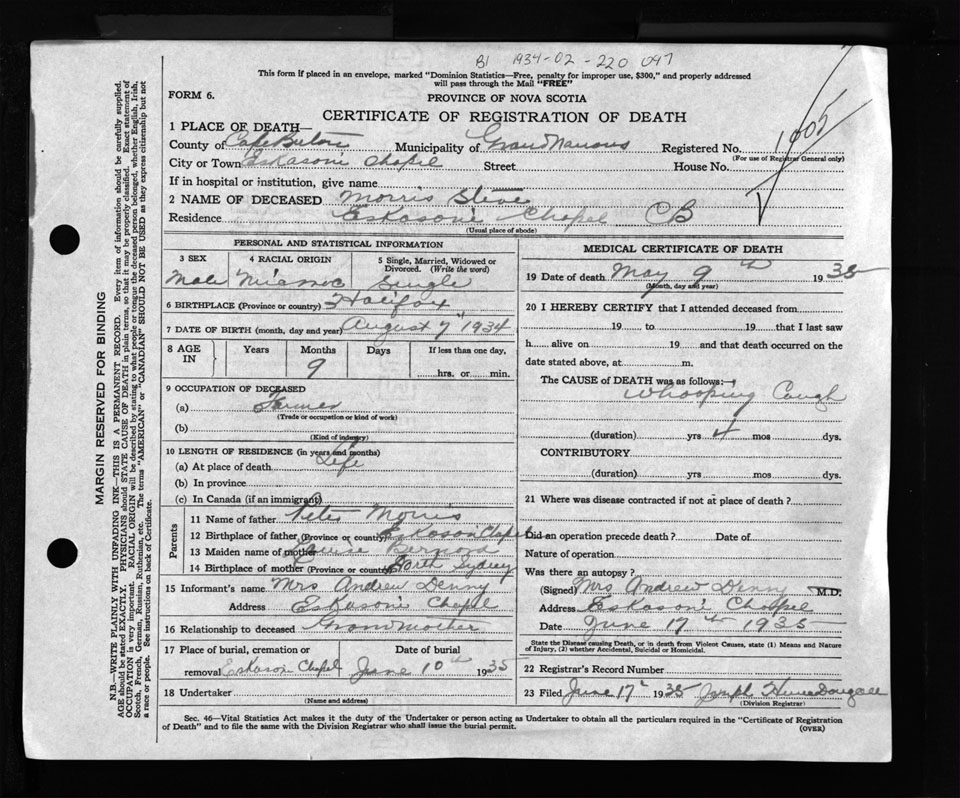 B1 1934-02-220 047
This form if placed in an envelope, marked "Dominion Statistics—Free, penalty for improper use, $300," and properly addressed
will pass through the Mail "FREE"
FORM 6.
PROVINCE OF NOVA SCOTIA
CERTIFICATE OF REGISTRATION OF DEATH
1005
1 PLACE OF DEATH—
County of Cape Breton Municipality of Registered No.
(For use of Registrar General only)
City or Town Eskasoni Chapel Street House No.
If in hospital or institution, give name
2 NAME OF DECEASED Morris Steve
Residence Eskasoni Chapel CB
(Usual place of abode)
PERSONAL AND STATISTICAL INFORMATION
3 SEX 4 RACIAL ORIGIN 5 Single, Married, Widowed or
Divorced. (Write the word)
Male Micmac Single
6 BIRTHPLACE (Province or country) Halifax
7 DATE OF BIRTH (month, day and year) August 7" 1934
8 AGE IN Years Months Days If less than one day,
9 hrs. or min.
9 OCCUPATION OF DECEASED
(a)
(Trade or occupation or kind of work)
(b)
(Kind of industry)
10 LENGTH OF RESIDENCE (in years and months)
(a) At place of death Life
(b) In province
(c) In Canada (if an immigrant)
Parents
11 Name of father Peter Morris
12 Birthplace of father (Province or country) Eskasoni Chapel
13 Maiden name of mother Louise Bernard
14 Birthplace of mother (Province or country) North Sydney
15 Informant's name Mrs Andrew Denny
Address Eskasoni Chapel
16 Relationship to deceased Grandmother
17 Place of burial, cremation or Date of burial
removal Eskasoni Chapel June 10th 1935
18 Undertaker
(Name and address)
MEDICAL CERTIFICATE OF DEATH
19 Date of death May 9th 1935
(Month, day and year)
20 I HEREBY CERTIFY that I attended deceased from
19 to 19 that I last saw
h alive on 19 and that death occurred on the
date stated above, at m.
The CAUSE of DEATH was as follows:
Whooping Cough
(duration) yrs 4 mos dys.
CONTRIBUTORY
(duration) yrs mos dys.
21 Where was disease contracted if not at place of death?
Did an operation precede death? Date of
Nature of operation
Was there an autopsy?
(Signed) Mrs Andrew Denny M.D.
Address Eskasoni Chapel
Date June 17th 1935
State the Disease causing Death, or in death from Violent Causes, state (1) Means and Nature
of Injury, (2) whether Accidental, Suicidal or Homicidal.
22 Registrar's Record Number
23 Filed June 17th 1935 Joseph
(Division Registrar)
Sec. 46—Vital Statistics Act makes it the duty of the Undertaker or person acting as Undertaker to obtain all the particulars required in the "Certificate of Registration
of Death" and to file the same with the Division Registrar who shall issue the burial permit. (OVER)
MARGIN RESERVED FOR BINDING
N.B.—WRITE PLAINLY WITH UNFADING INK—THIS IS A PERMANENT RECORD. Every item of information should be carefully supplied.
AGE should be stated EXACTLY. PHYSICIANS should STATE CAUSE OF DEATH in plain terms, so that it may be properly classified. Exact statement of
OCCUPATION is very important. RACIAL ORIGIN will be described by stating to what people or tongue the deceased person belonged, whether English, Irish,
Scotch, French, German, Russian, Ruthenian, etc. The terms "AMERICAN" or "CANADIAN" SHOULD NOT BE USED as they express citizenship but not
a race or people. See instructions on back of Certificate.